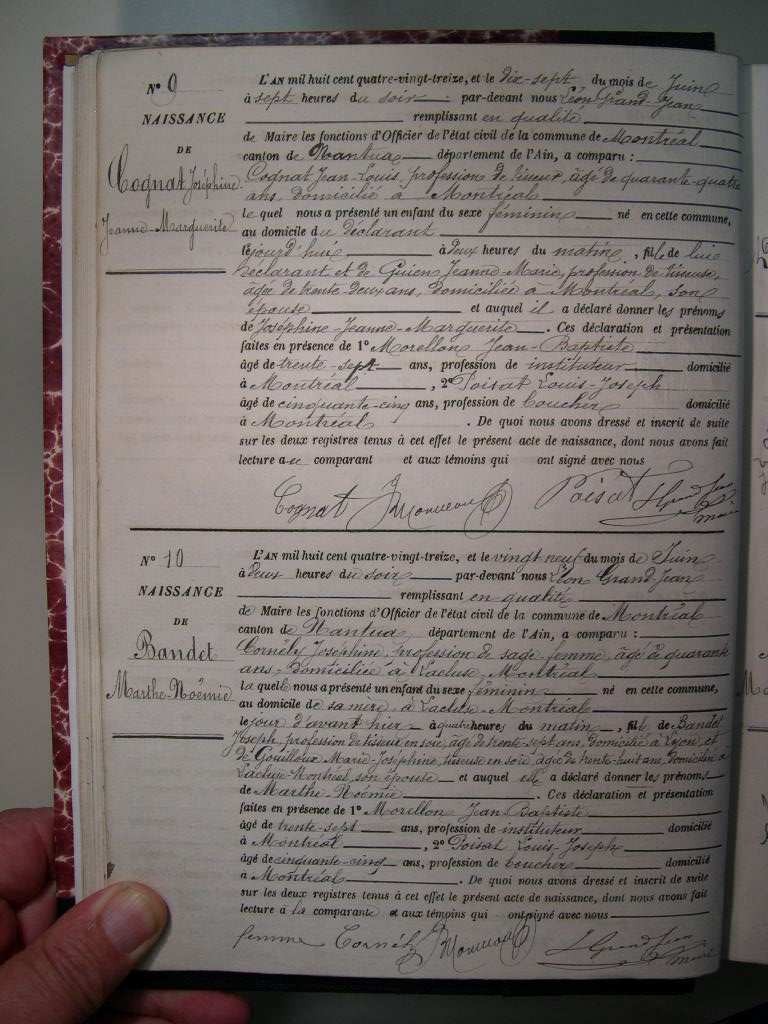 N° 9
NAISSANCE
DE
Cognat Joséphine
Jeanne-Marguerite
L'AN mil huit cent quatre-vingt-treize, et le dix-sept du mois de Juin
à sept heures du soir par-devant nous Léon Grand-Jean
remplissant en qualité
de Maire les fonctions d'Officier de l'état civil de la commune de Montréal
canton de Nantua département de l'Ain, a comparu :
Cognat Jean-Louis, profession de tisseur, âgé de quarante-quatre
ans, domicilié à Montréal
le quel nous a présenté un enfant du sexe féminin né en cette commune,
au domicile du déclarant
lejourd'hui à deux heures du matin, fil de lui
déclarant et de Guien Jeanne-Marie, profession de tisseuse,
âgée de trente deux ans, domiciliée à Montréal, son
épouse et auquel il a déclaré donner les prénoms
de Joséphine-Jeanne-Marguerite. Ces déclaration et présentation
faites en présence de 1° Morellon Jean-Baptiste
âgé de trente-sept ans, profession de instituteur domicilié
à Montréal, 2° Poisat Louis-Joseph
âgé de cinquante-cinq ans, profession de boucher domicilié
à Montréal. De quoi nous avons dressé et inscrit de suite
sur les deux registres tenus à cet effet le présent acte de naissance, dont nous avons fait
lecture au comparant et aux témoins qui ont signé avec nous
Cognat Poisat L Grand Jean
maire
N° 10
NAISSANCE
DE
Bandet
Marthe-Noémie
L'AN mil huit cent quatre-vingt-treize, et le vingt neuf du mois de Juin
à deux heures du soir par-devant nous Léon Grand-Jean
remplissant en qualité
de Maire les fonctions d'Officier de l'état civil de la commune de Montréal
canton de Nantua, département de l'Ain, a comparu :
Cornély Joséphine, profession de sage-femme, âgé de quarante
ans, domiciliée à Lacluse, Montréal
la quelle nous a présenté un enfant du sexe féminin né en cette commune,
au domicile de sa mère à Lacluse-Montréal
le jour d'avant hier à quatre heures du matin, fille de Bandet
Joseph, profession de tisseur en soie, âgé de trente-sept ans, domicilié à Lyon, et
de Gouilloux Marie-Joséphine, tisseuse en soie, âgée de trente-huit ans, domiciliée à
Lacluse-Montréal, son épouse et auquel elle a déclaré donner les prénoms
de Marthe Noémie. Ces déclaration et présentation
faites en présence de 1° Morellon Jean-Baptiste
âgé de trente-sept ans, profession de instituteur domicilié
à Montréal, 2° Poisat Louis-Joseph
âgé de cinquante-cinq ans, profession de boucher domicilié
à Montréal. De quoi nous avons dressé et inscrit de suite
sur les deux registres tenus à cet effet le présent acte de naissance, dont nous avons fait
lecture à la comparante et aux témoins qui ont signé avec nous
femme Cornély L Grand Jean
maire